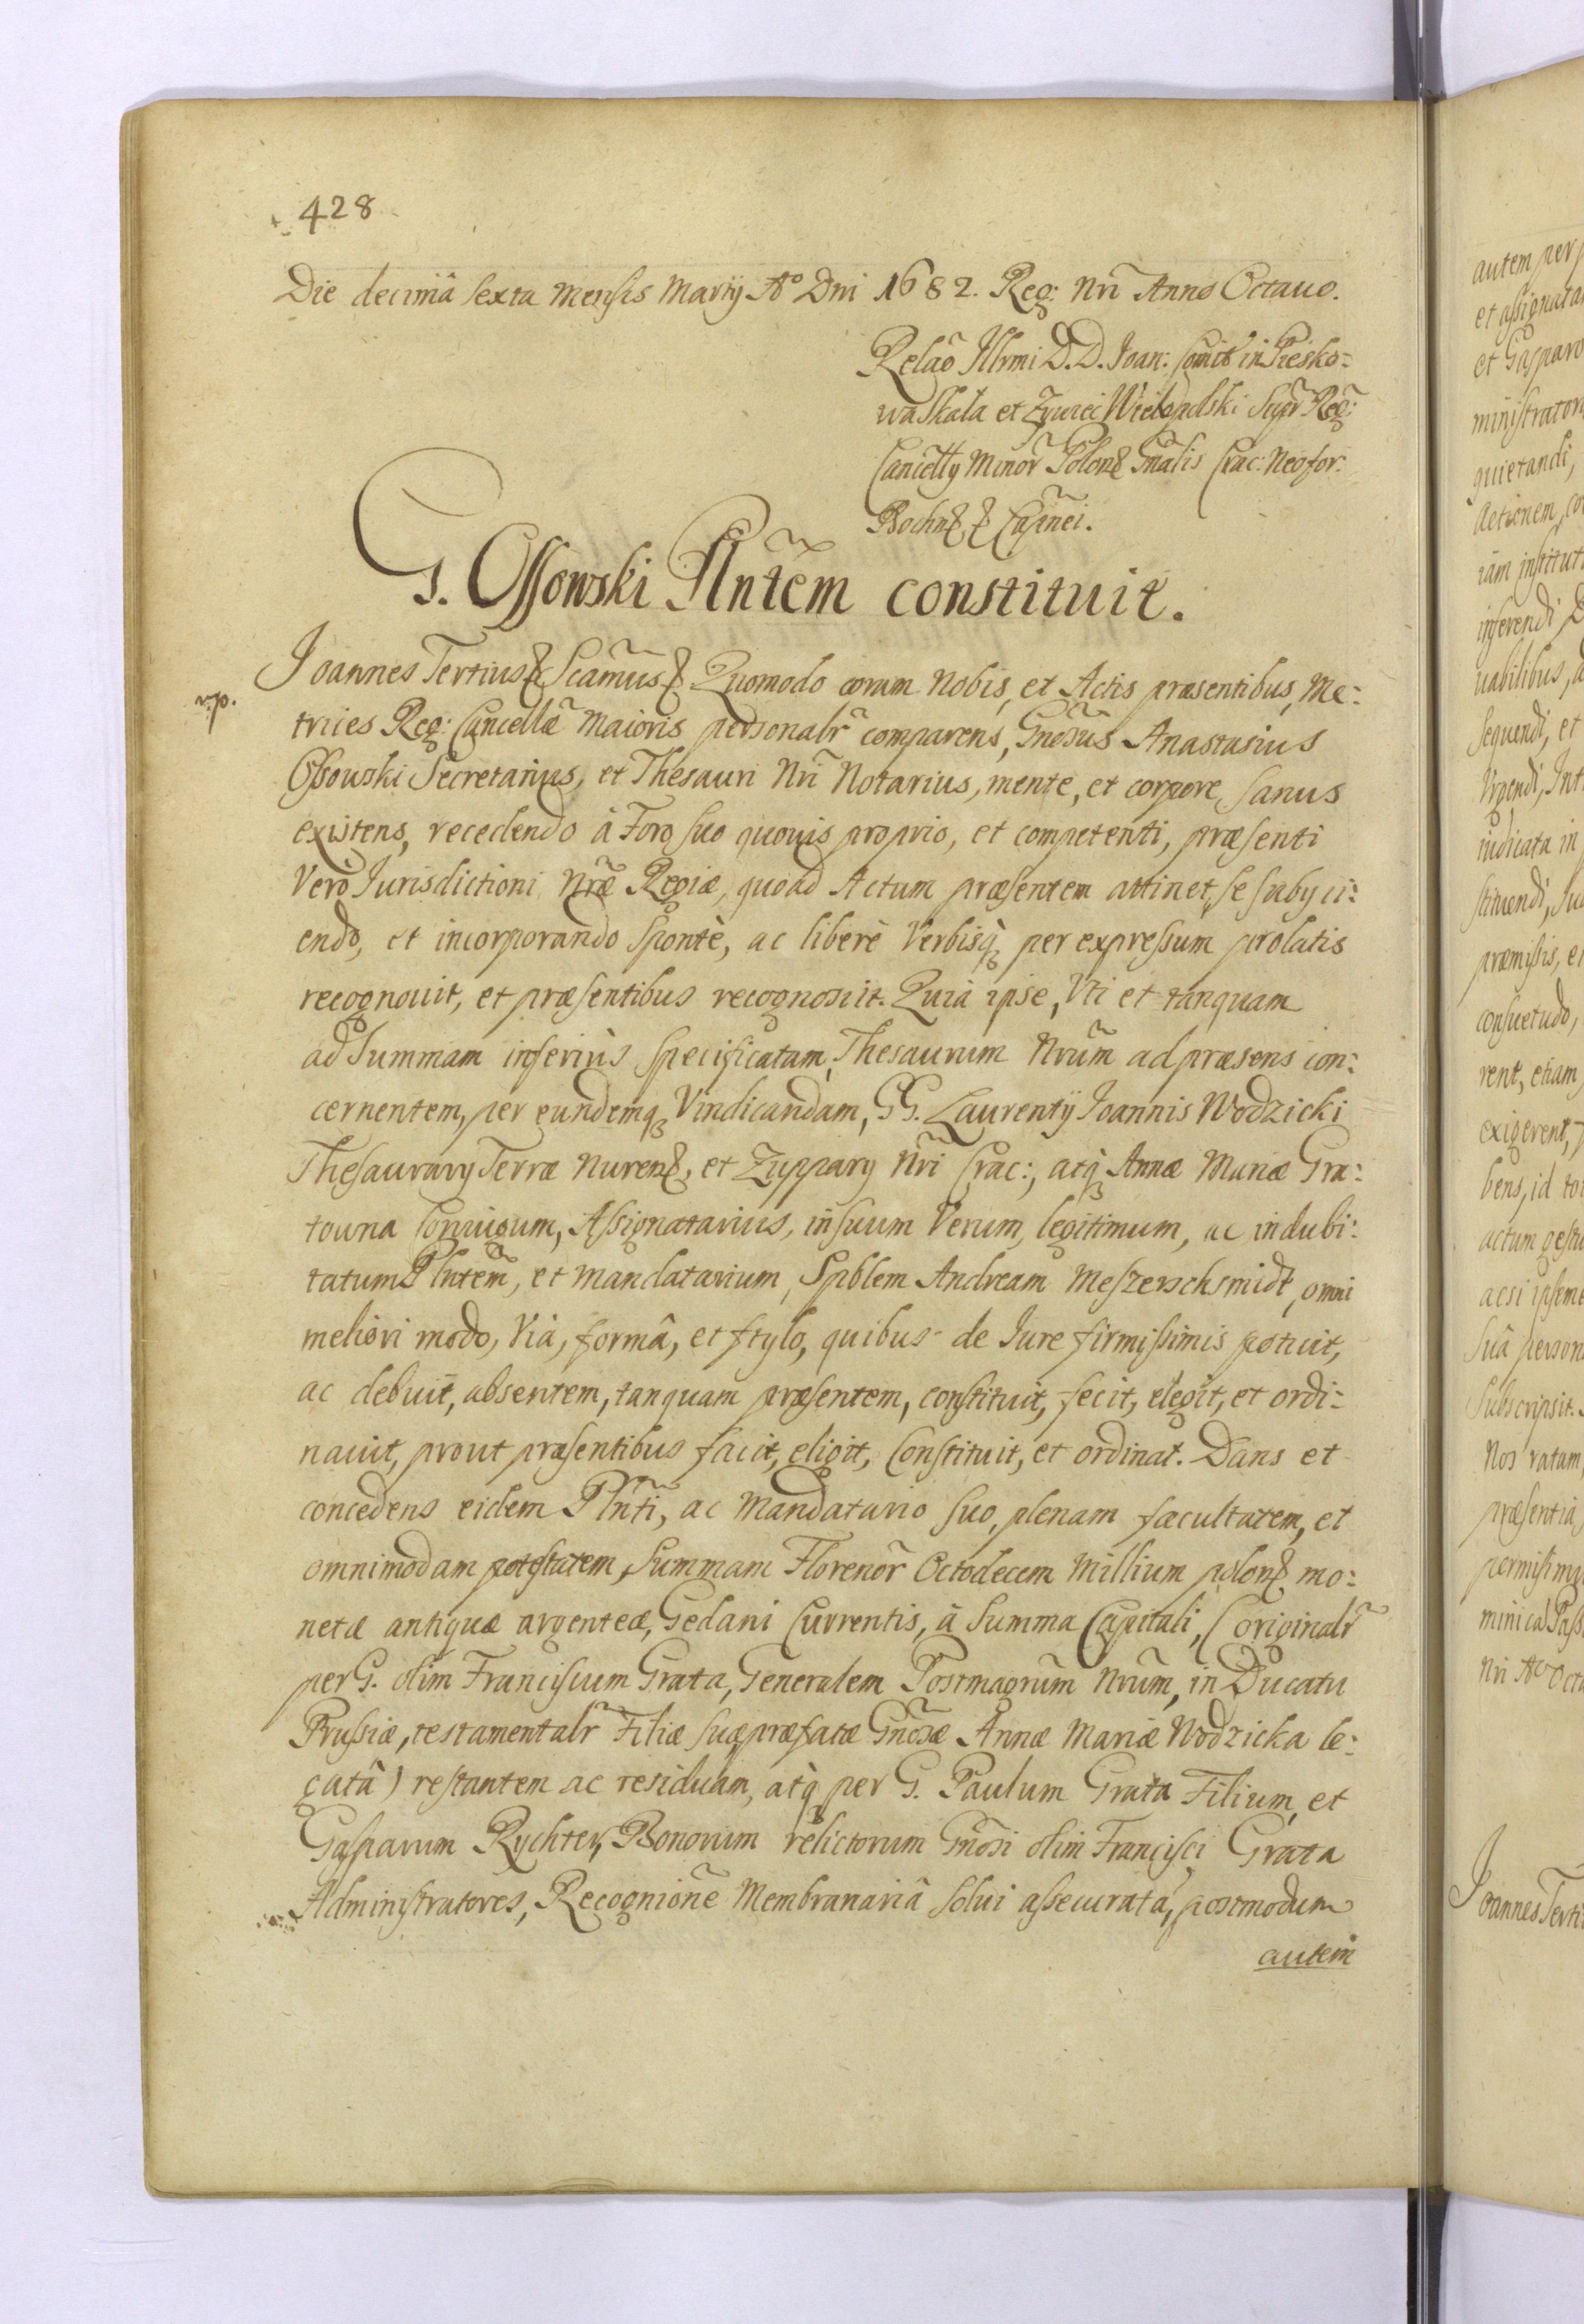 428
Die decimâ sexta Mensis Martij Aº Dni 1682. Reg: Nri Anno Octauo.
Relaõ Illrmi D.D. Ioan: Comit in Piesko=
wa Skala et Zywiec Wielopolski Supr Reg:
Cancellÿ Minor Polon& Gñalis Crac: Neofor:
Bochn& &
G. Ossowski Plñtem constituit.
Joannes Tertius & Scãmus & Quomodo coram Nobis, et Actis præsentibus, Me=
v.p.
trices Reg: Cancellæ Maioris personalr comparens, Gnẽsus Anastasius
Ossowski Secretarius, et Thesauri Nri Notarius, mente, et corpore, sanus
existens, recedendo à Foro suo quouis proprio, et competenti, præsenti
Verò Iurisdictioni Nræ Regiæ, quoad Actum præsentem attinet, se subyci=
endo, et incorporando Spontè, ac liberè Verbisq; per expressum prolatis
recognouit, et præsentibus recognoscit. Quià ipse, Vti et tanquam
ad Summam inferiùs specificatam, Thesaurum Nrũm ad præsens con:
cernentem, per eundemq; Vindicandam, GG. Laurentij Joannis Wodzicki
Thesaurarÿ Terræ Nuren&, et Zupparÿ Nri Crac:, atq; Annæ Mariæ Gra:
towna Coniugum, Assignatarius, in suum Verum, legitimum, ac indubi:
tatum Plñtem, et Mandatarium, Spblem Andream Meszerschsmidt, omni
meliori modo, Viâ, formâ, et stylo, quibus de Iure firmissimis potuit,
ac debuit, absentem, tanquam præsentem, constituit, fecit, elegit, et ordi=
nauit, prout præsentibus facit, eligit, Constituit, et ordinat. Dans et
concedens eidem Plñti, ac Mandatario suo, plenam facultatem, et
omnimodam potestatem, Summam Florenor Octodecem Millium polon& mo:
netæ antiquæ argenteæ, Gedani Currentis, à Summa Capitali, (originalr
per G. olim Franciscum Grata, Generalem Postmagrum Nrũm, in Ducatu
Prussiæ, testamentalr Filiæ suæ præfatæ Gñosæ Annæ Mariæ Wodzicka le:
gatâ) restantem ac residuam, atq; per G. Paulum Grata Filium, et
Gasparum Rychter, Bonorum relictorum Gñosi olim Francisci Grata
Administratores, Recognioñe Membranariâ solui assecuratâ, postmodum
autem
autem per
et assignata
et Gasparo
ministrator
quietandi,
Actionem, co
iam institut
inferendi
uabilibus, a
sequendi, et
Vrgendi, Int
iudicata in
stituendi, su
præmissis, e
consuetudo,
rent, etiam
exigerent,
bens, id to
actum gestu
acsi ipseme
Suâ person
Subscripsit.
Nos ratam,
præsentia,
permissima
minica Pass
Nri Aº Octa
Joannes Terti